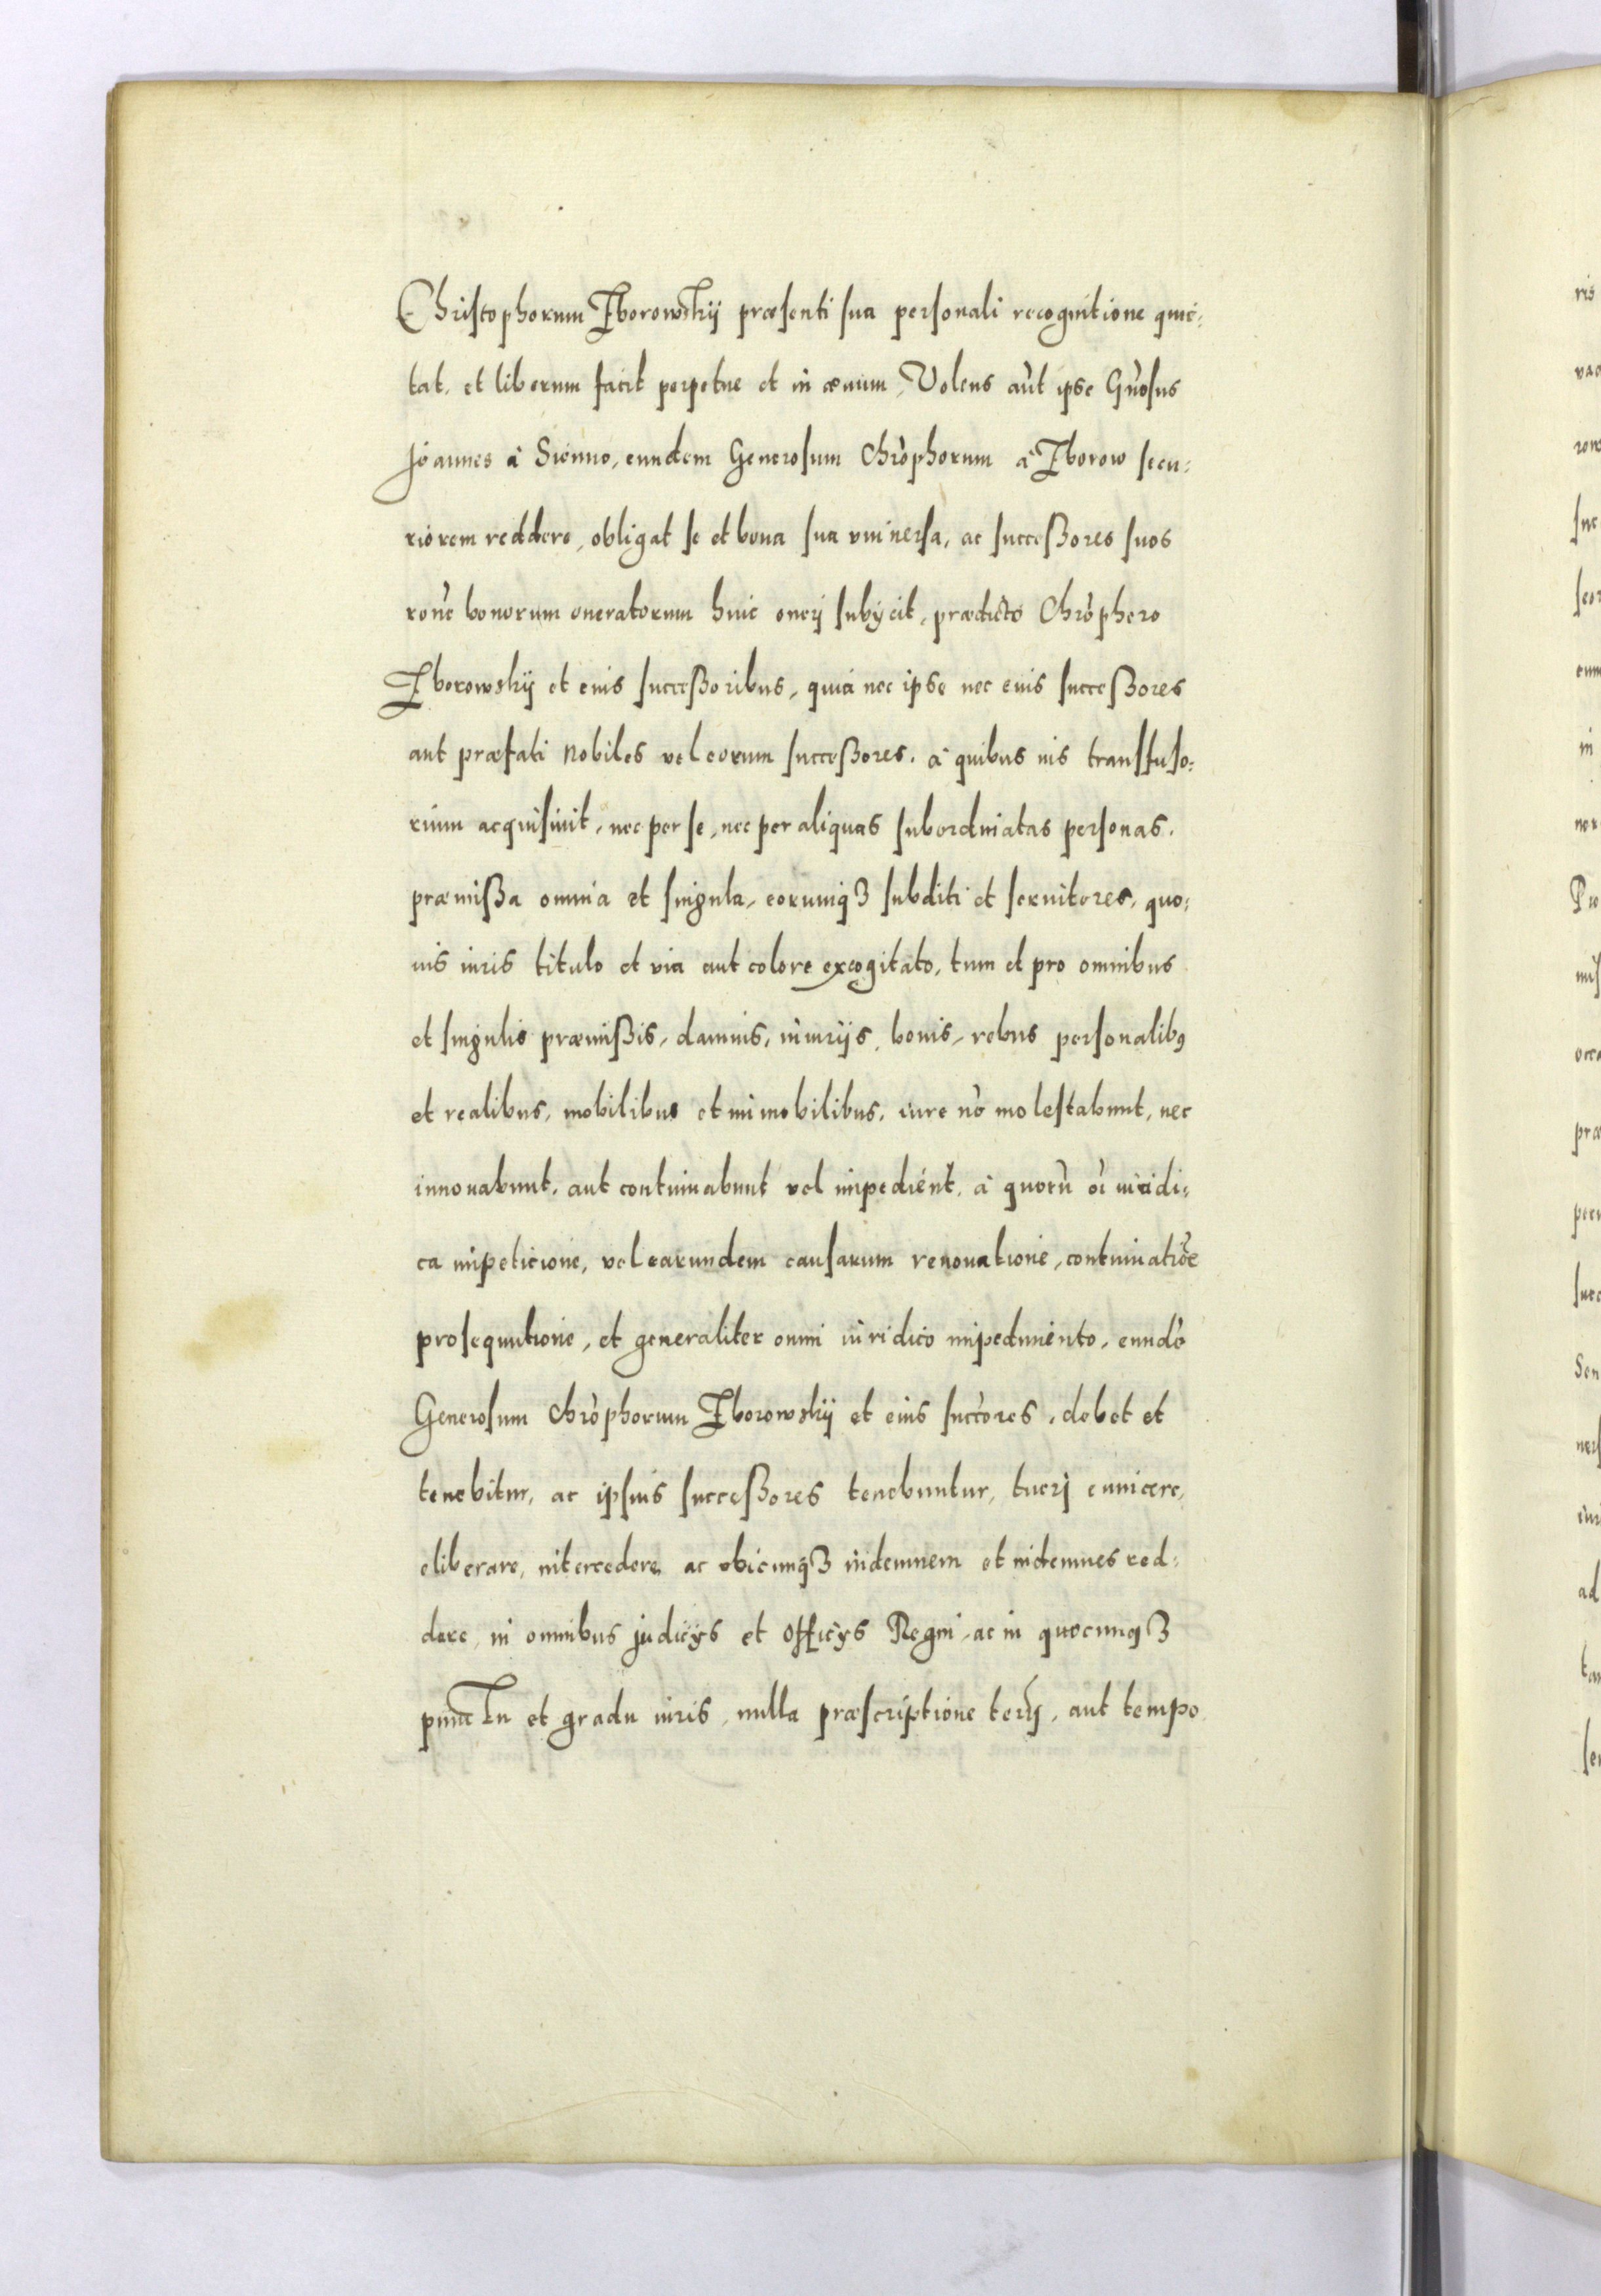 Christophorum Zborowskij præsenti sua personali recognitione quie:
tat, et liberum facit perpetue et in æuum, Volens aūt ipse Gn̄osus
Joannes à Sienno, eundem Generosum Chrōphorum à Zborow secu:
riorem reddere, obligat se et bona sua vniuersa, ac succeßores suos
ron̄e bonorum oneratorum huic onerj subÿcit, prædicto Chrōphoro
Zborowskij et eius succeßoribus, quia nec ipse nec eius succeßores
aut præfati Nobiles vel eorum succeßores, à quibus ius transfuso:
rium acquisiuit, nec per se, nec per aliquas subordinatas personas,
præmißa omnia et singula, eorumqꝫ subditi et seruitores, quo:
uis iuris titulo et via aut colore excogitato, tum et pro omnibus
et singulis præmißis, damnis, iniurijs, bonis, rebus personalibꝯ
et realibus, mobilibus et immobilibus, iure nō molestabunt, nec
innouabunt, aut continuabunt vel impedient, à quorū oī iuridi:
ca impeticione, vel earundem causarum renouatione, continuatiōe
prosequutione, et generaliter omni iuridico impedimento, eundē
Generosum Chrōphorum Zborowskij et eius succ̄ores, debet et
tenebitur, ac ipsius succeßores tenebuntur, tuerj euincere,
eliberare, intercedere ac vbicunqꝫ indemnem et indemnes red:
dere, in omnibus judicÿs et officÿs Regni, ac in quocunqꝫ
punctu et gradu iuris, nulla præscriptione terrj, aut tempo